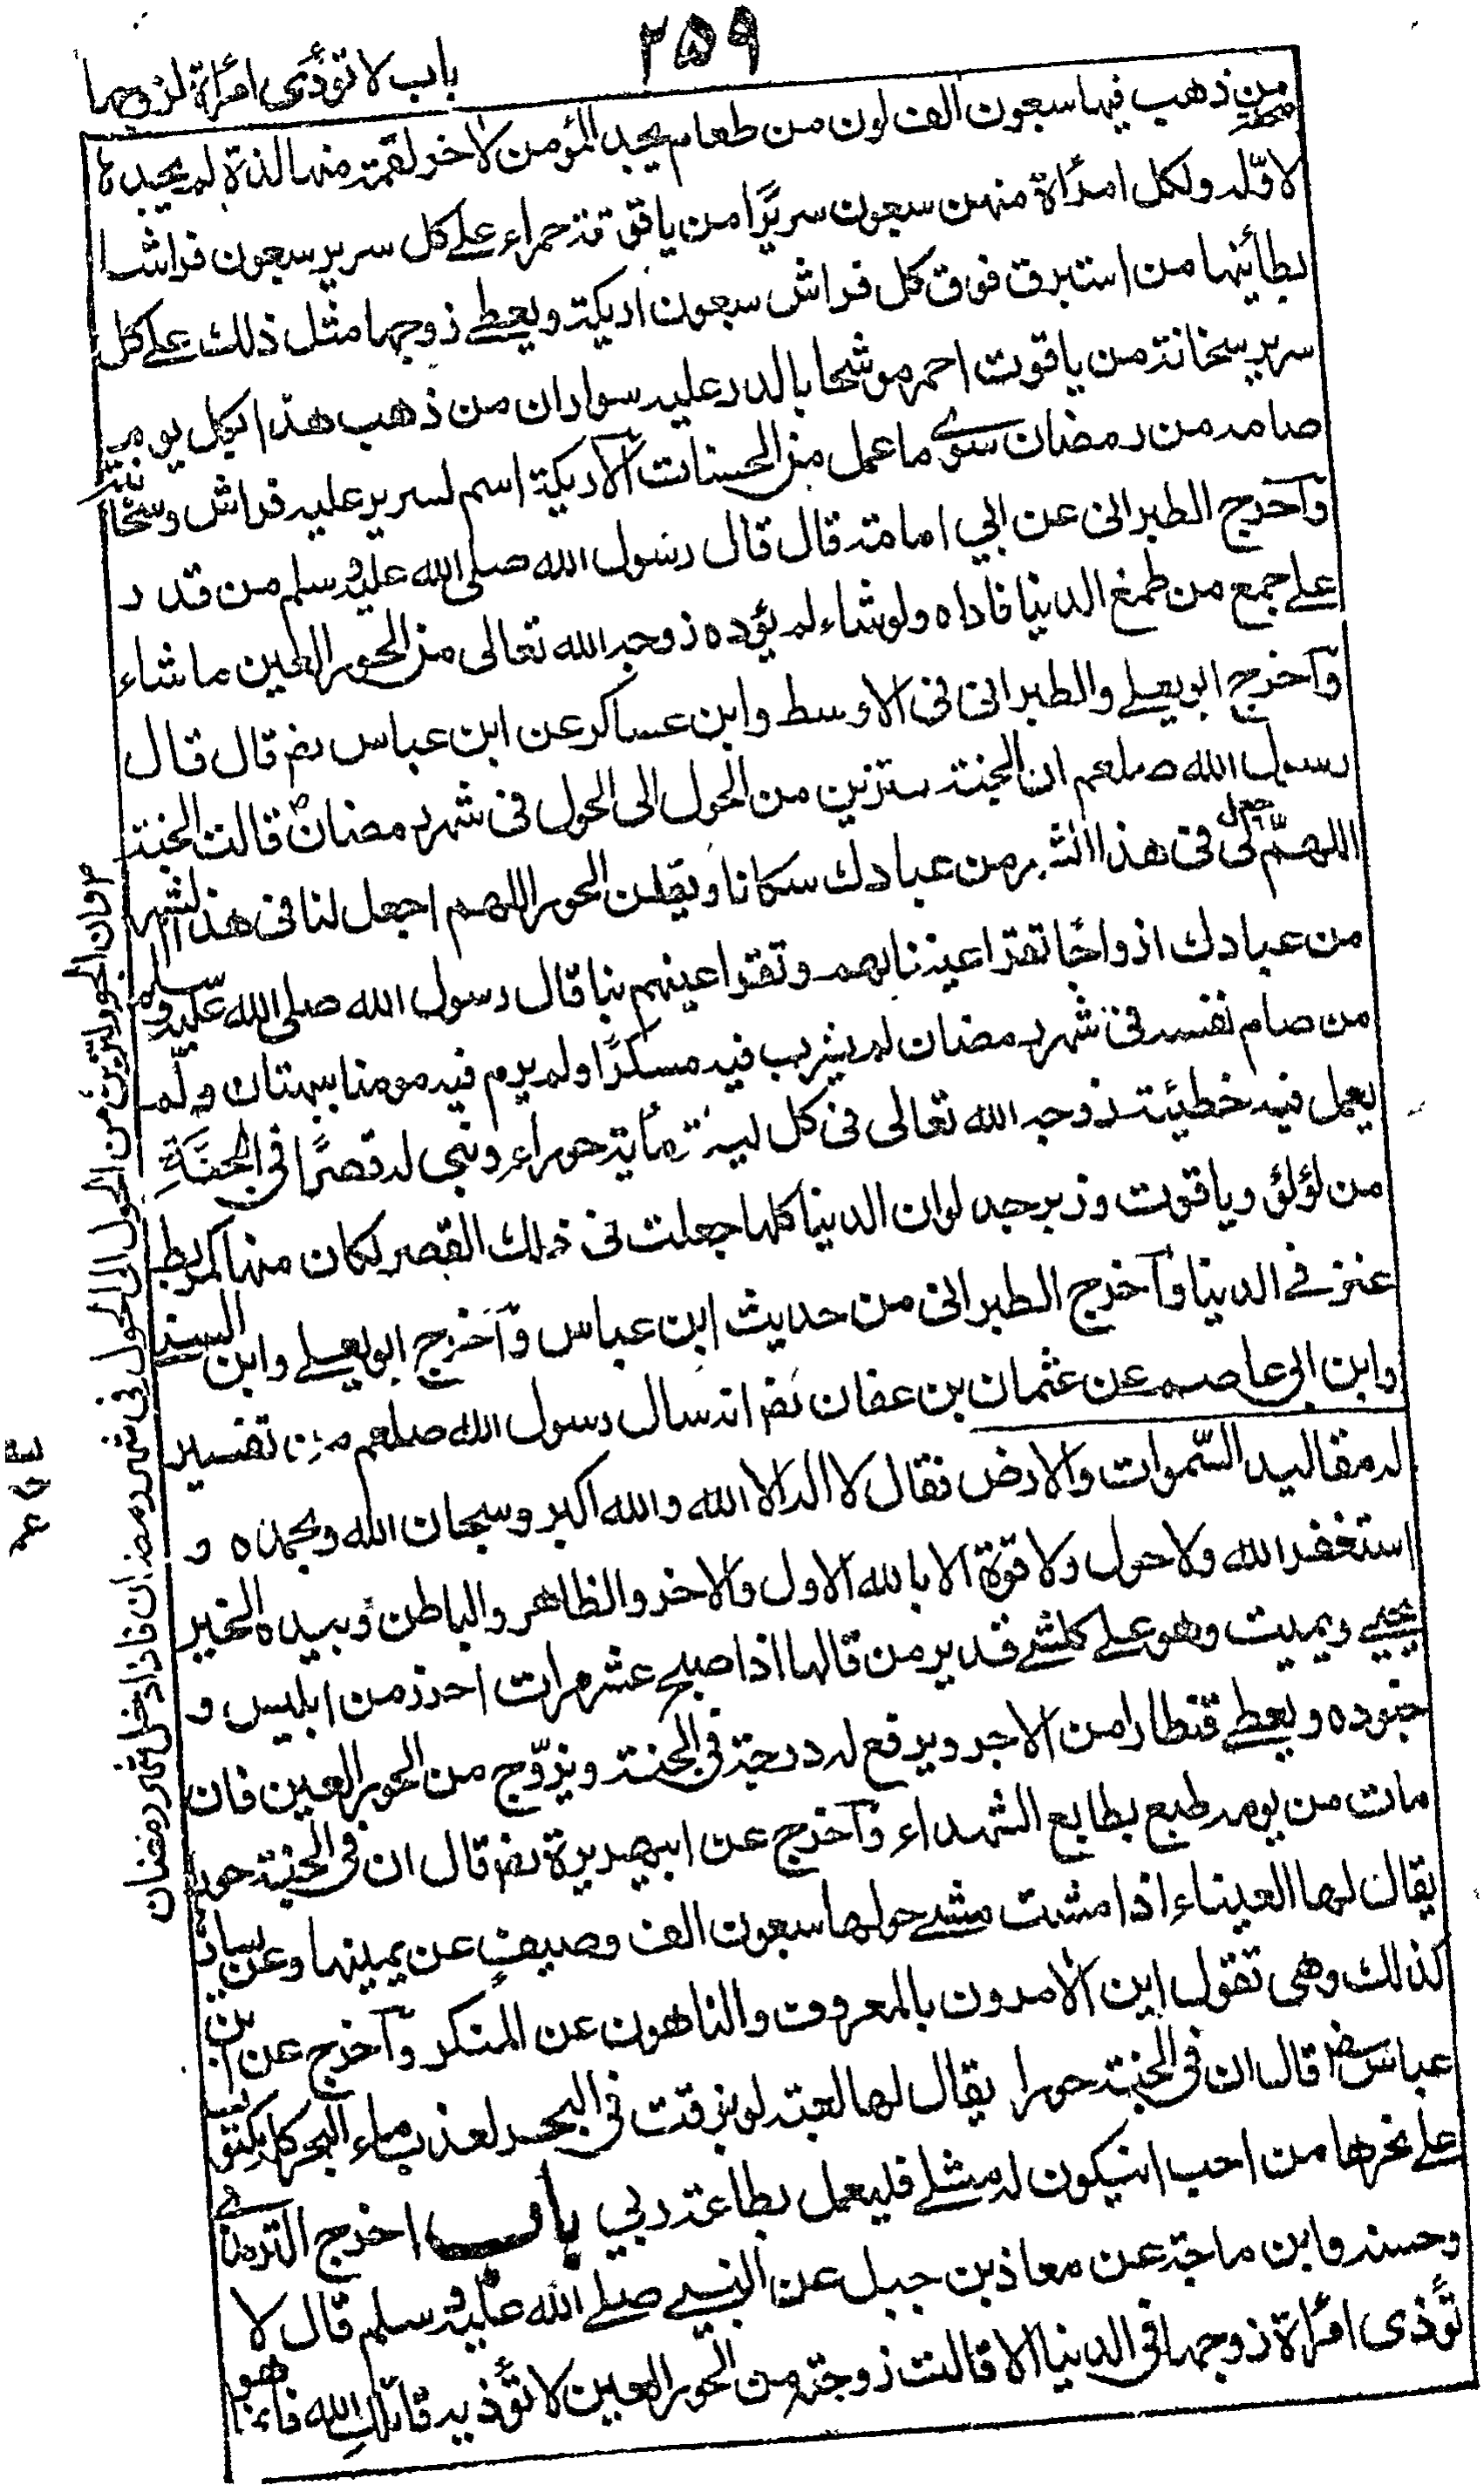 ۲۵۹
باب لا تؤذی امرأة لزوجها
من ذهب فيها سبعون الف لون من طعام يجد المؤمن لاخر لقمة منها لذة لم يجدها
لاوّله ولكل امرأة منهن سبعون سريرًا من ياقوتة حمراء علے كل سرير سبعون فراشا
بطائنها من استبرق فوق كل فراش سبعون اريكة ويعطے زوجها مثل ذلك علے كل
سرير من ياقوت احمر موشحا بالدر عليه سواران من ذهب هذا بكل يوم
صامه من رمضان سوے ما عمل من الحسنات الاريكة اسم لسرير عليه فراش
وآخرج الطبرانی عن ابي امامة قال قال رسول الله صلی الله عليه وسلم من قدر
علے جمع من طمع الدنيا فاداه ولو شاء لم يؤده زوجه الله تعالى من الحور العين ما شاء
وآخرج ابو يعلے والطبرانی فی الاوسط وابن عساكر عن ابن عباس رضـ قال قال
رسول الله صلعم ان الجنة ستزين من الحول الى الحول فی شهر رمضان قالت الجنة
اللهمّ اجعل لی فی هذا الشهر من عبادك سكانا ويقلن الحور اللهم اجعل لنا فی هذا الشهر
من عبادك ازواجًا تقر اعيننا بهم وتقر اعينهم بنا قال رسول الله صلی الله عليه وسلم
من صام نفسه فی شهر رمضان لم يشرب فيه مسكرًا ولم يرم فيه مومنا ببهتان ولم
يعمل فيه خطيئة زوجه الله تعالى فی كل ليلة مأية حوراء وبنی له قصرًا فی الجنَّةِ
من لؤلؤ وياقوت وزبرجد لو ان الدنيا كلها جعلت فی ذلك القصر لكان منها كمربط
عنز فے الدنيا وآخرج الطبرانی من حديث ابن عباس وآخرج ابو يعلے وابن السنی
وابن ابی عاصم عن عثمان بن عفان رضـ انه سال رسول الله صلعم من تفسير
له مقاليد السّموات والارض فقال لا اله الا الله والله اكبر وسبحان الله وبحمده و
استغفر الله ولا حول ولا قوة الا بالله الاول والاخر والظاهر والباطن وبيده الخير
يحيے ويميت وهو علے كلشے قدير من قالها اذا صبح عشر مرات احرز من ابليس و
جنوده ويعطے قنطارا من الاجر ويرفع له درجة فی الجنة ويزوّج من الحور العين فان
مات من يومه طبع بطابع الشهداء وآخرج عن ابيهريرة رضـ قال ان فی الجنة حوراء
يقال لها العيناء اذا مشت مشے حولها سبعون الف وصيف عن يمينها وعن يسارها
كذلك وهی تقول اين الامرون بالمعروف والناهون عن المنكر وآخرج عن ابن
عباس رضـ قال ان فی الجنة حورا يقال لها لعبة لو بزقت فی البحر لعذب ماء البحر كله مكتوب
علے نحرها من احب انيكون له مثلے فليعمل بطاعة ربي باب اخرج الترمذے
وحسنه وابن ماجة عن معاذ بن جبل عن النبے صلے الله عليه وسلم قال لا
تؤذی امرأة زوجها فی الدنيا الا قالت زوجته من الحور العين لا تؤذيه قاتلكِ الله فانما هو
وان الحور لتزين من الحول الى الحول فی شهر رمضان فاذا دخل شهر رمضان